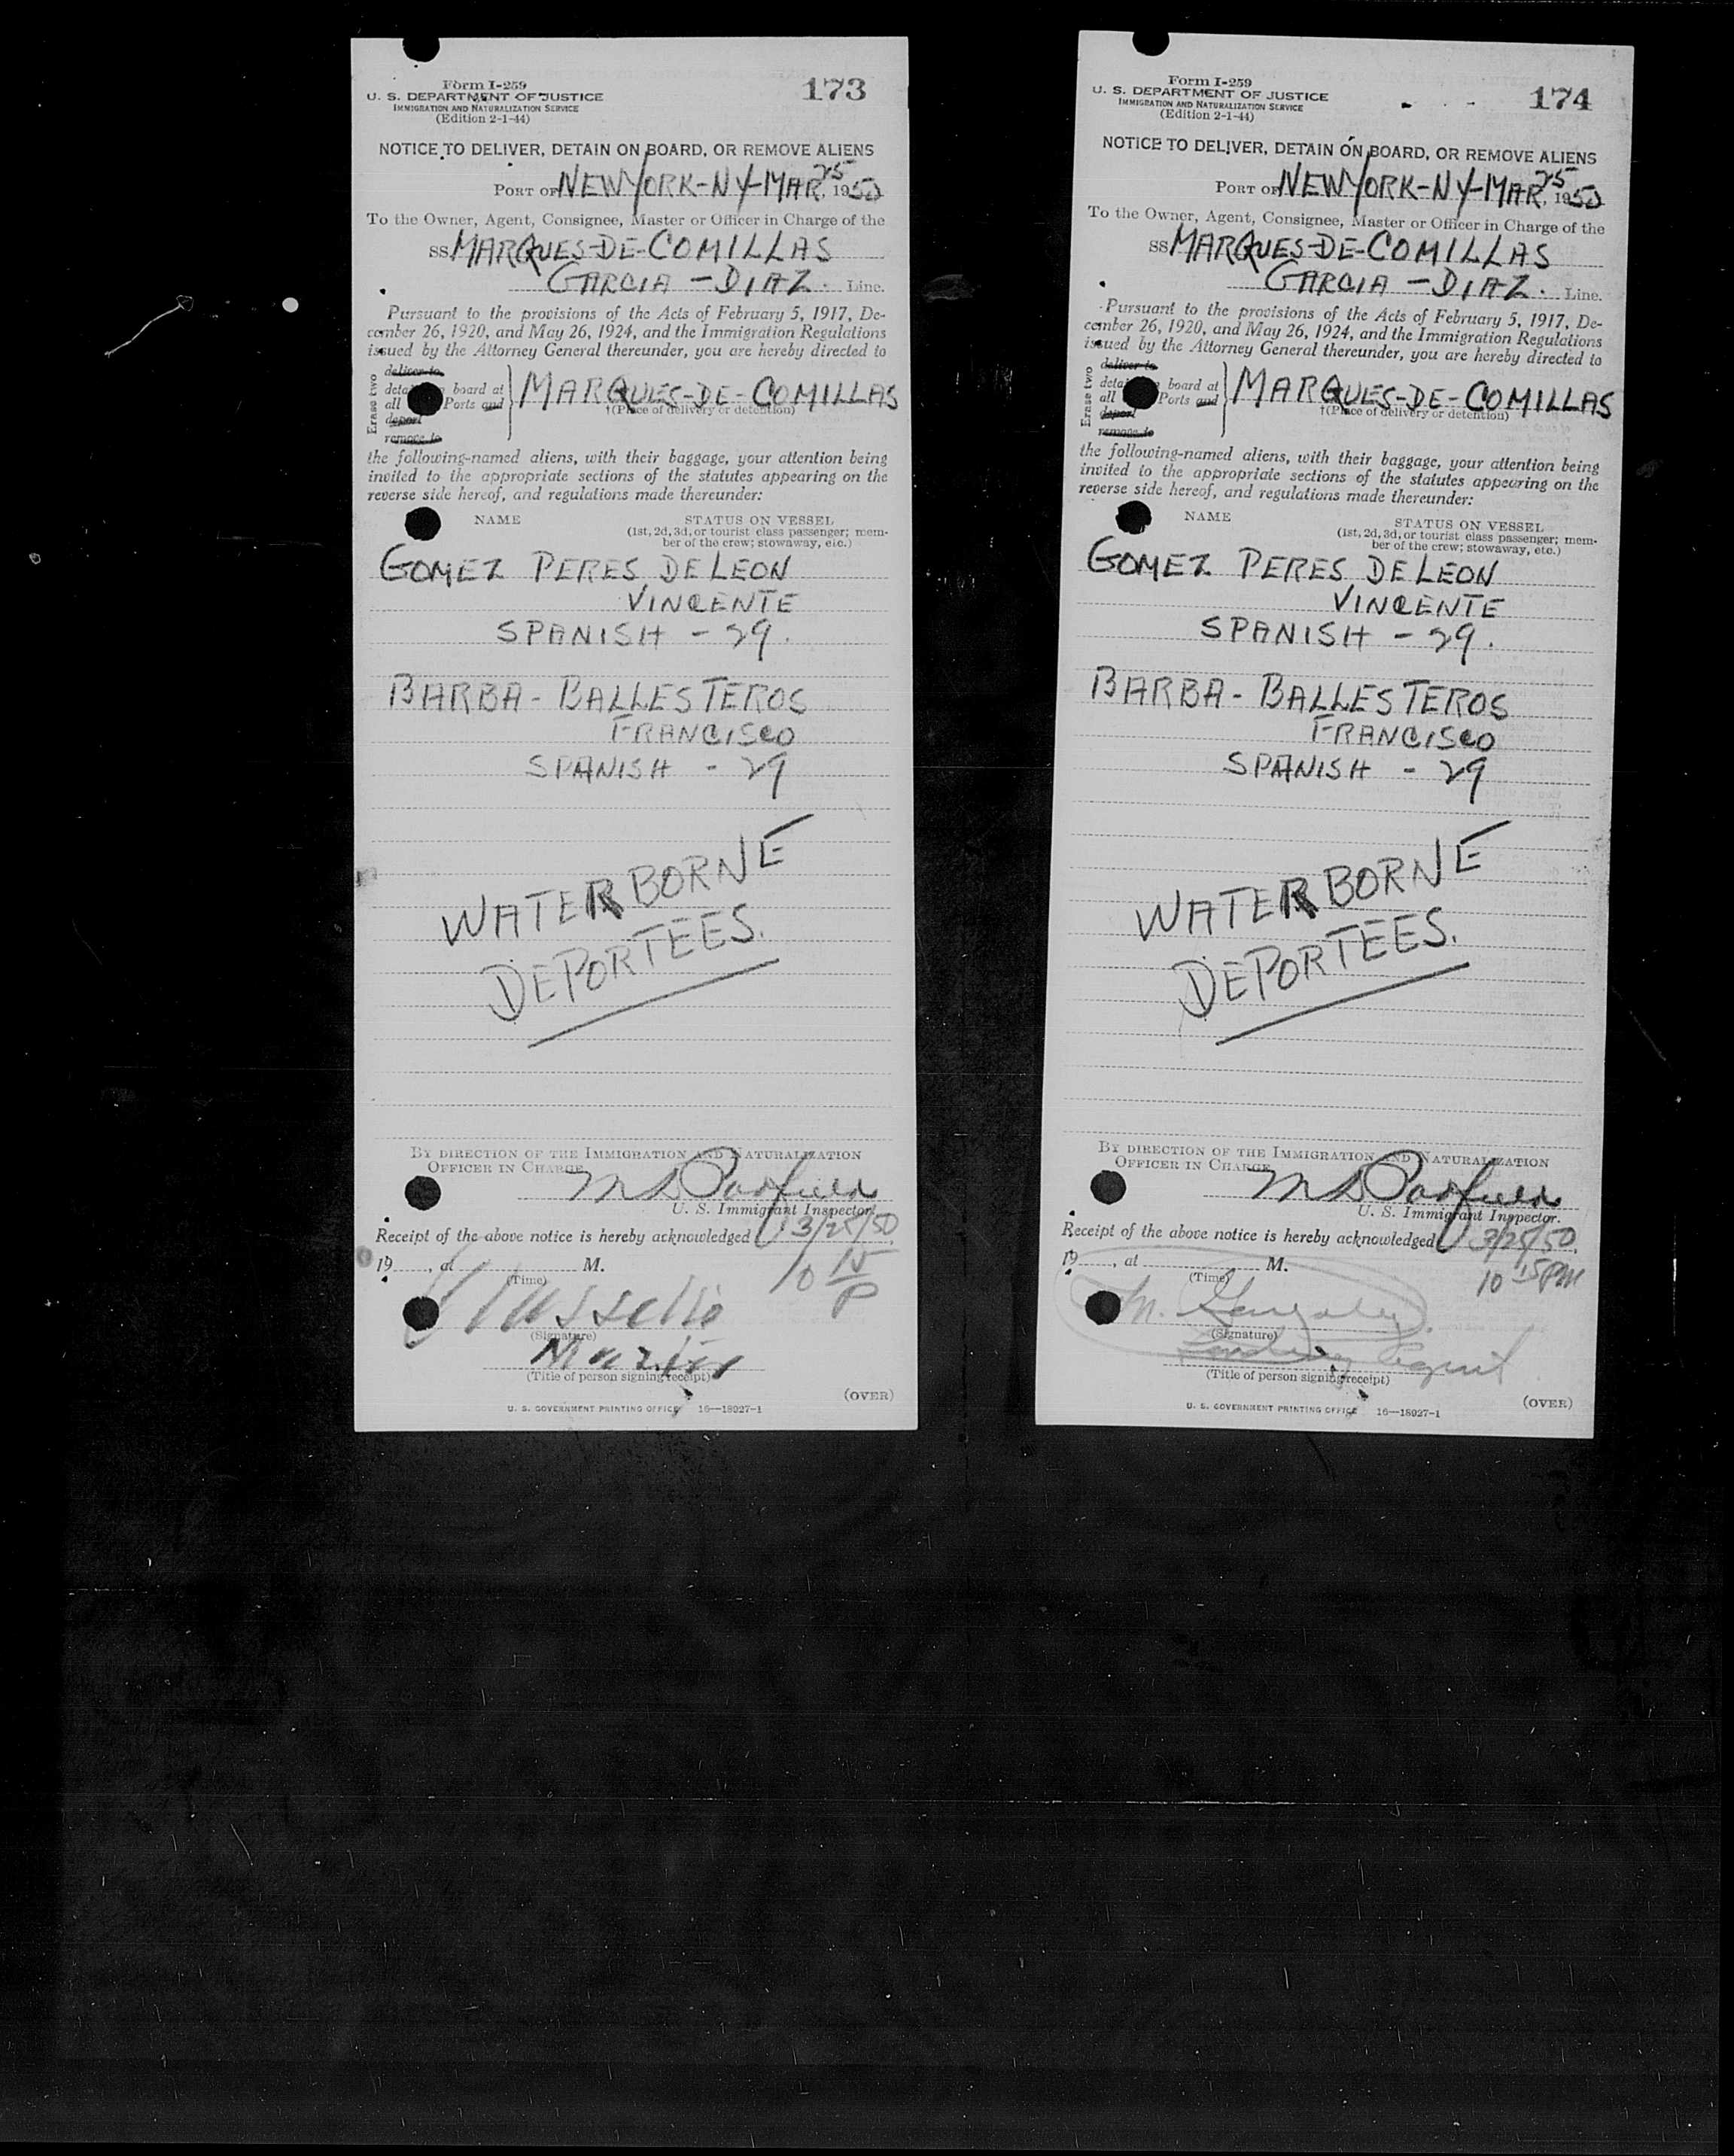 Form I-259
U. S. DEPARTMENT OF JUSTICE
IMMIGRATION AND NATURALIZATION SERVICE
(Edition 2-1-44)
173
NOTICE TO DELIVER, DETAIN ON BOARD, OR REMOVE ALIENS
PORT OF NEW YORK-NY-MAR. 25, 1950
To the Owner, Agent, Consignee, Master or Officer in Charge of the
SS MARQUES-DE-COMILLAS
GARCIA - DIAZ. Line.
Pursuant to the provisions of the Acts of February 5, 1917, De-
cember 26, 1920, and May 26, 1924, and the Immigration Regulations
issued by the Attorney General thereunder, you are hereby directed to
Erase two
deliver to
board at
all Ports and
deport
remove to
MARQUES-DE-COMILLAS
†(Place of delivery or detention)
the following-named aliens, with their baggage, your attention being
invited to the appropriate sections of the statutes appearing on the
reverse side hereof, and regulations made thereunder:
NAME STATUS ON VESSEL
(1st, 2d, 3d, or tourist class passenger; mem-
ber of the crew; stowaway, etc.)
GOMEZ PERES, DE LEON
VINCENTE
SPANISH - 29.
BARBA - BALLESTEROS
FRANCISCO
SPANISH - 29
WATERBORNE
DEPORTEES.
BY DIRECTION OF THE IMMIGRATION AND NATURALIZATION
OFFICER IN CHARGE
U. S. Immigrant Inspector.
Receipt of the above notice is hereby acknowledged 3/25/50,
19, at M. 10 15 P
(Time)
(Signature)
(Title of person signing receipt)
(OVER)
U. S. GOVERNMENT PRINTING OFFICE 16—18927-1
Form I-259
U. S. DEPARTMENT OF JUSTICE
IMMIGRATION AND NATURALIZATION SERVICE
(Edition 2-1-44)
174
NOTICE TO DELIVER, DETAIN ON BOARD, OR REMOVE ALIENS
PORT OF NEW YORK-NY-MAR. 25, 1950
To the Owner, Agent, Consignee, Master or Officer in Charge of the
SS MARQUES-DE-COMILLAS
GARCIA - DIAZ. Line.
Pursuant to the provisions of the Acts of February 5, 1917, De-
cember 26, 1920, and May 26, 1924, and the Immigration Regulations
issued by the Attorney General thereunder, you are hereby directed to
Erase two
deliver to
board at
all Ports and
deport
remove to
MARQUES-DE-COMILLAS
†(Place of delivery or detention)
the following-named aliens, with their baggage, your attention being
invited to the appropriate sections of the statutes appearing on the
reverse side hereof, and regulations made thereunder:
NAME STATUS ON VESSEL
(1st, 2d, 3d, or tourist class passenger; mem-
ber of the crew; stowaway, etc.)
GOMEZ PERES, DE LEON
VINCENTE
SPANISH - 29.
BARBA - BALLESTEROS
FRANCISCO
SPANISH - 29
WATERBORNE
DEPORTEES.
BY DIRECTION OF THE IMMIGRATION AND NATURALIZATION
OFFICER IN CHARGE
U. S. Immigrant Inspector.
Receipt of the above notice is hereby acknowledged 3/25/50,
19, at M. 10 15 PM
(Time)
(Signature)
Agent
(Title of person signing receipt)
(OVER)
U. S. GOVERNMENT PRINTING OFFICE 16—18927-1